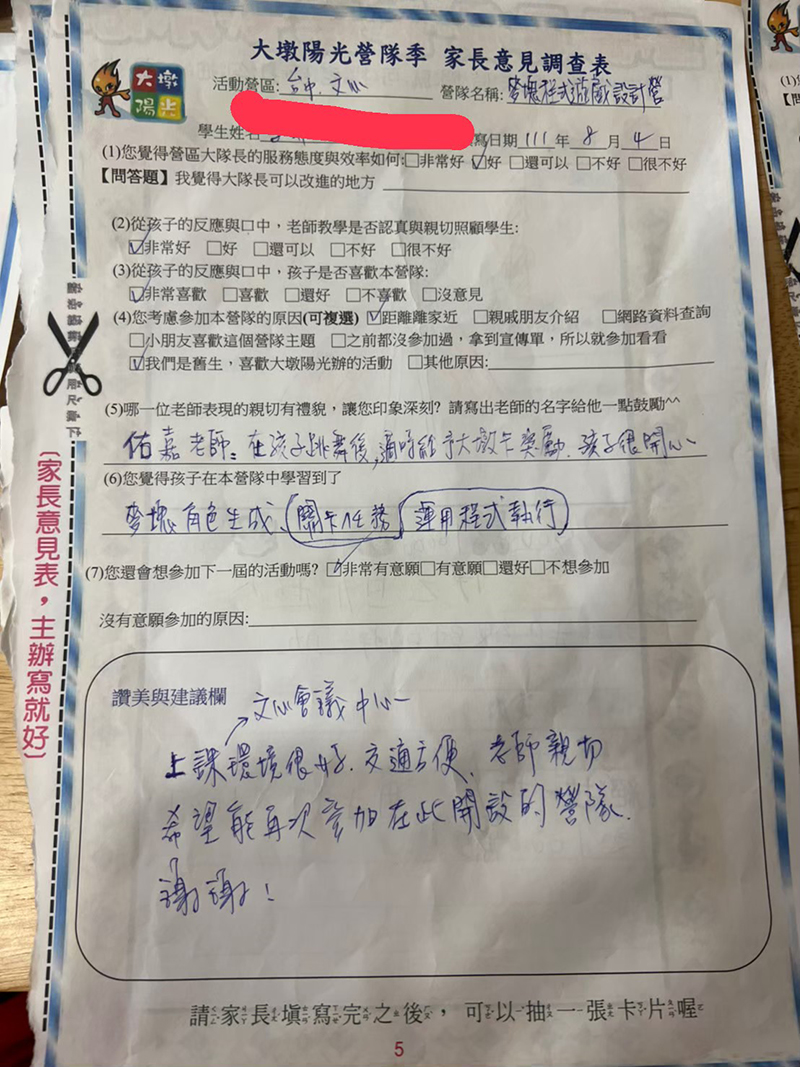 大墩陽光營隊季 家長意見調查表
大墩
陽光
活動營區:台中.文心 營隊名稱:麥塊程式遊戲設計營
學生姓名 寫日期111年8月4日
(1)您覺得營區大隊長的服務態度與效率如何:□非常好☑好 □還可以 □不好 □很不好
【問答題】我覺得大隊長可以改進的地方
(2)從孩子的反應與口中,老師教學是否認真與親切照顧學生:
☑非常好 □好 □還可以 □不好 □很不好
(3)從孩子的反應與口中,孩子是否喜歡本營隊:
☑非常喜歡 □喜歡 □還好 □不喜歡 □沒意見
(4)您考慮參加本營隊的原因(可複選) ☑距離離家近 □親戚朋友介紹 □網路資料查詢
□小朋友喜歡這個營隊主題 □之前都沒參加過,拿到宣傳單,所以就參加看看
☑我們是舊生,喜歡大墩陽光辦的活動 □其他原因:
(5)哪一位老師表現的親切有禮貌,讓您印象深刻? 請寫出老師的名字給他一點鼓勵^^
佑嘉老師:在孩子跳舞後,適時給予大墩卡獎勵.孩子很開心
(6)您覺得孩子在本營隊中學習到了
麥塊角色生成、關卡任務 運用程式執行
(7)您還會想參加下一屆的活動嗎? ☑非常有意願□有意願□還好□不想參加
沒有意願參加的原因:
讚美與建議欄
文心會議中心
上課環境很好.交通方便.老師親切
希望能再次參加在此開設的營隊.
謝謝!
請家長填寫完之後,可以抽一張卡片喔
5
〔家長意見表,主辦寫就好〕